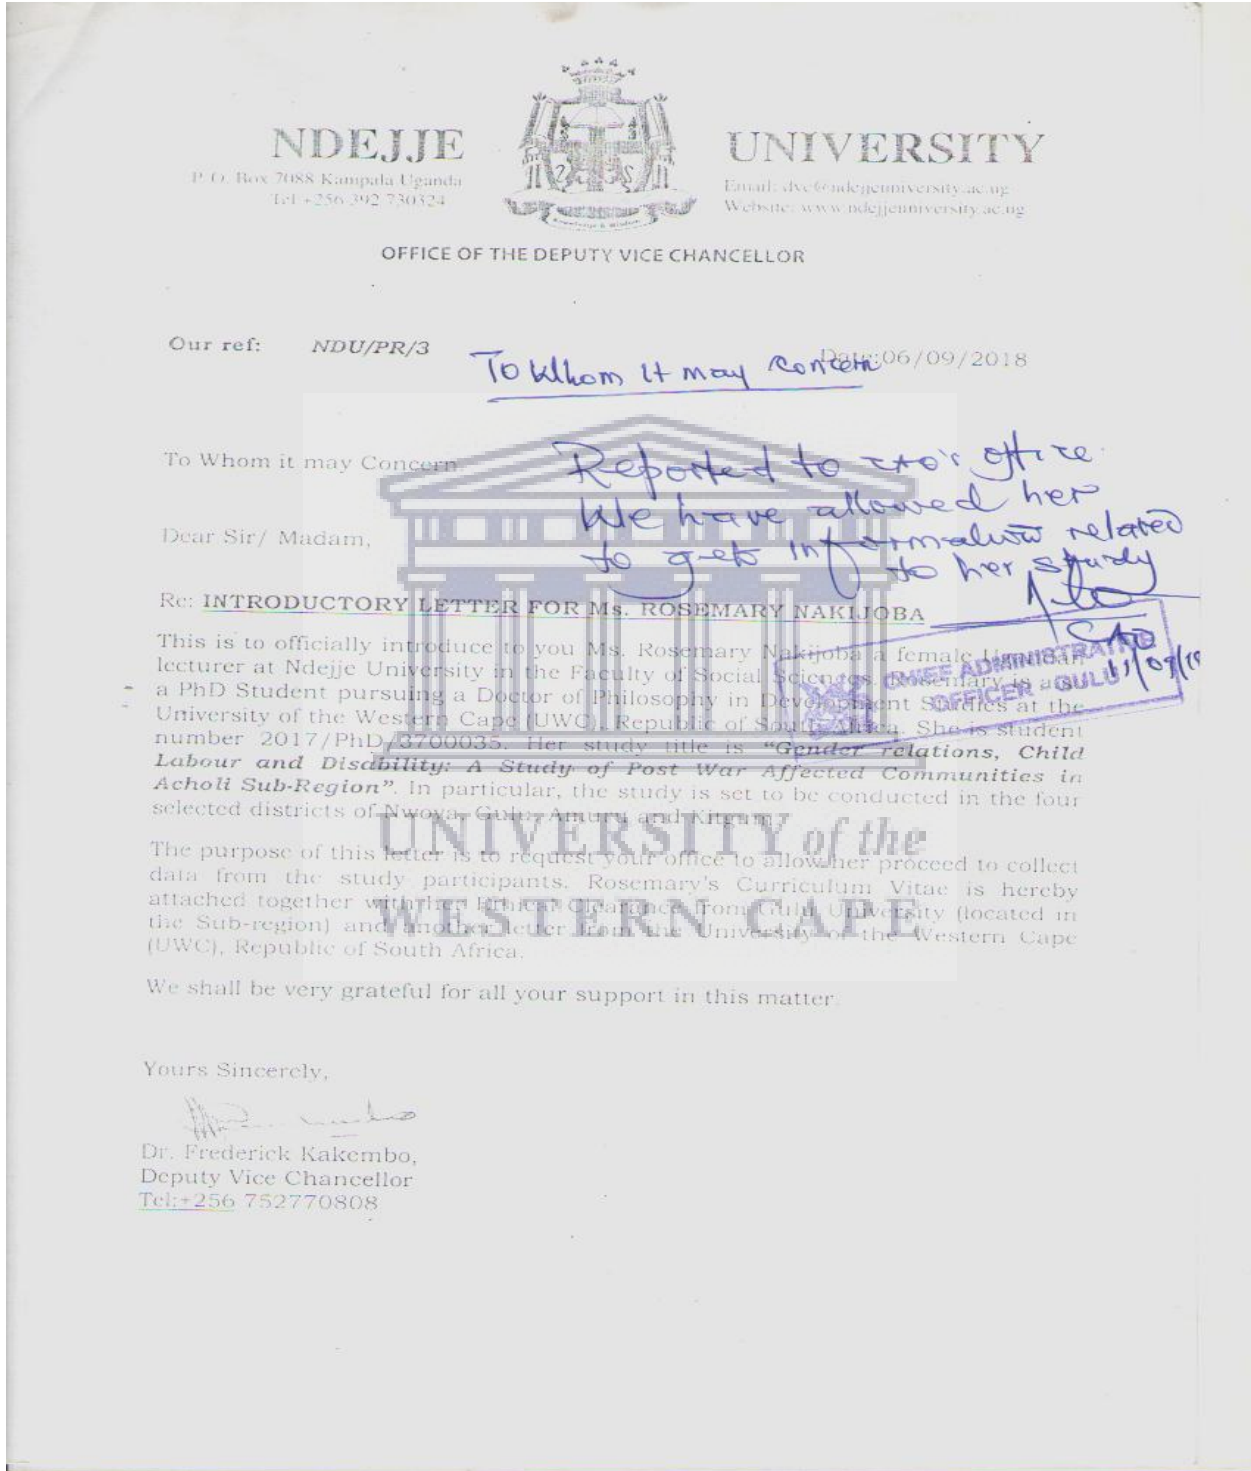 NDEJJE UNIVERSITY
P.O. Box 7088 Kampala Uganda
Tel +256 392 730324
Email: dvc@ndejjeuniversity.ac.ug
Website: www.ndejjeuniversity.ac.ug
Knowledge & Wisdom
OFFICE OF THE DEPUTY VICE CHANCELLOR
Our ref: NDU/PR/3
Date:06/09/2018
To Whom it may concern
To Whom it may Concern
Reported to CAO's office.
We have allowed her
to get information related
to her study
Dear Sir/ Madam,
Re: INTRODUCTORY LETTER FOR Ms. ROSEMARY NAKIJOBA
CAO
CHIEF ADMINISTRATIVE
OFFICER - GULU
This is to officially introduce to you Ms. Rosemary Nakijoba a female Ugandan
lecturer at Ndejje University in the Faculty of Social Sciences. Rosemary is also
a PhD Student pursuing a Doctor of Philosophy in Development Studies at the
University of the Western Cape (UWC), Republic of South Africa. She is student
number 2017/PhD/3700035. Her study title is "Gender relations, Child
Labour and Disability: A Study of Post War Affected Communities in
Acholi Sub-Region". In particular, the study is set to be conducted in the four
selected districts of Nwoya, Gulu, Amuru and Kitgum.
The purpose of this letter is to request your office to allow her proceed to collect
data from the study participants. Rosemary's Curriculum Vitae is hereby
attached together with her Ethical Clearance from Gulu University (located in
the Sub-region) and another letter from the University of the Western Cape
(UWC), Republic of South Africa.
UNIVERSITY of the
WESTERN CAPE
We shall be very grateful for all your support in this matter.
Yours Sincerely,
Dr. Frederick Kakembo,
Deputy Vice Chancellor
Tel:+256 752770808